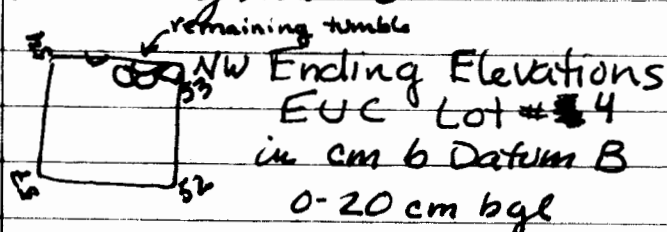 remaining tumble
NW Ending Elevations
53
EUC Lot # 4
in cm b Datum B
52
0-20 cm bgl